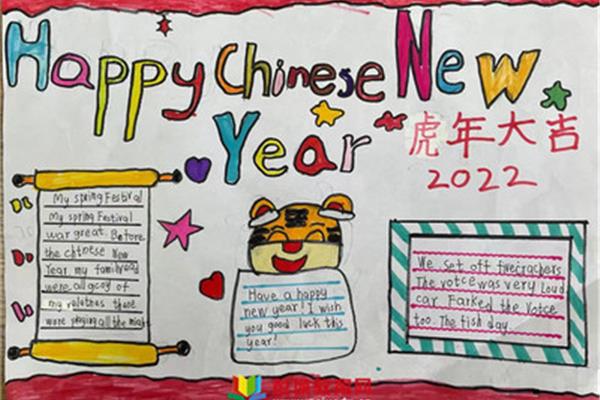 Happy Chinese New
Year
虎年大吉
2022
My spring Festival
My spring Festival
war great. Before
the chinese New
Year my family
were all
my relatives there
were playing all the night
Have a happy
new year! I wish
you good luck this
year!
We set off firecrachers
The votce was very loud
car. Farked the votce
too. The fish day.